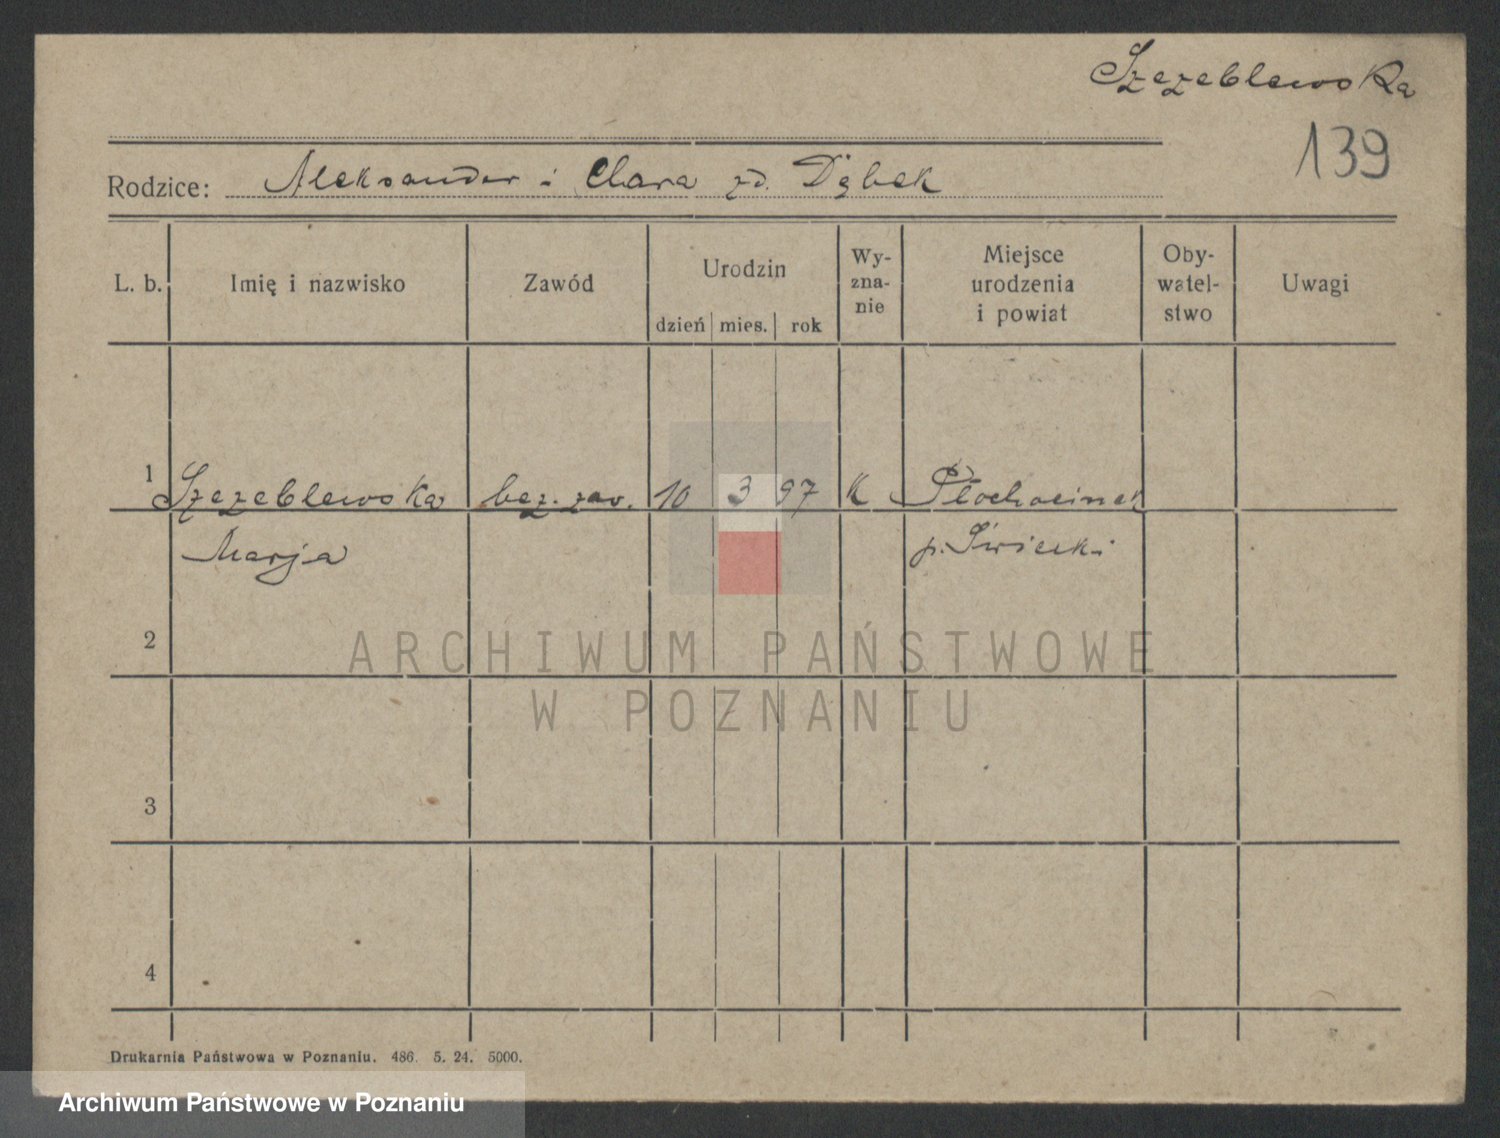 Szczeblewska
139
Rodzice: Aleksander i Clara zd. Dąbek
L. b. Imię i nazwisko Zawód Urodzin dzień mies. rok Wy-zna-nie Miejsce urodzenia i powiat Oby-watel-stwo Uwagi
1 Szczeblewska bez. zaw. 10 3 97 K Płochocinek
Marja p. Świecki
2
ARCHIWUM PAŃSTWOWE
W POZNANIU
3
4
Drukarnia Państwowa w Poznaniu. 486. 5. 24. 5000.
Archiwum Państwowe w Poznaniu